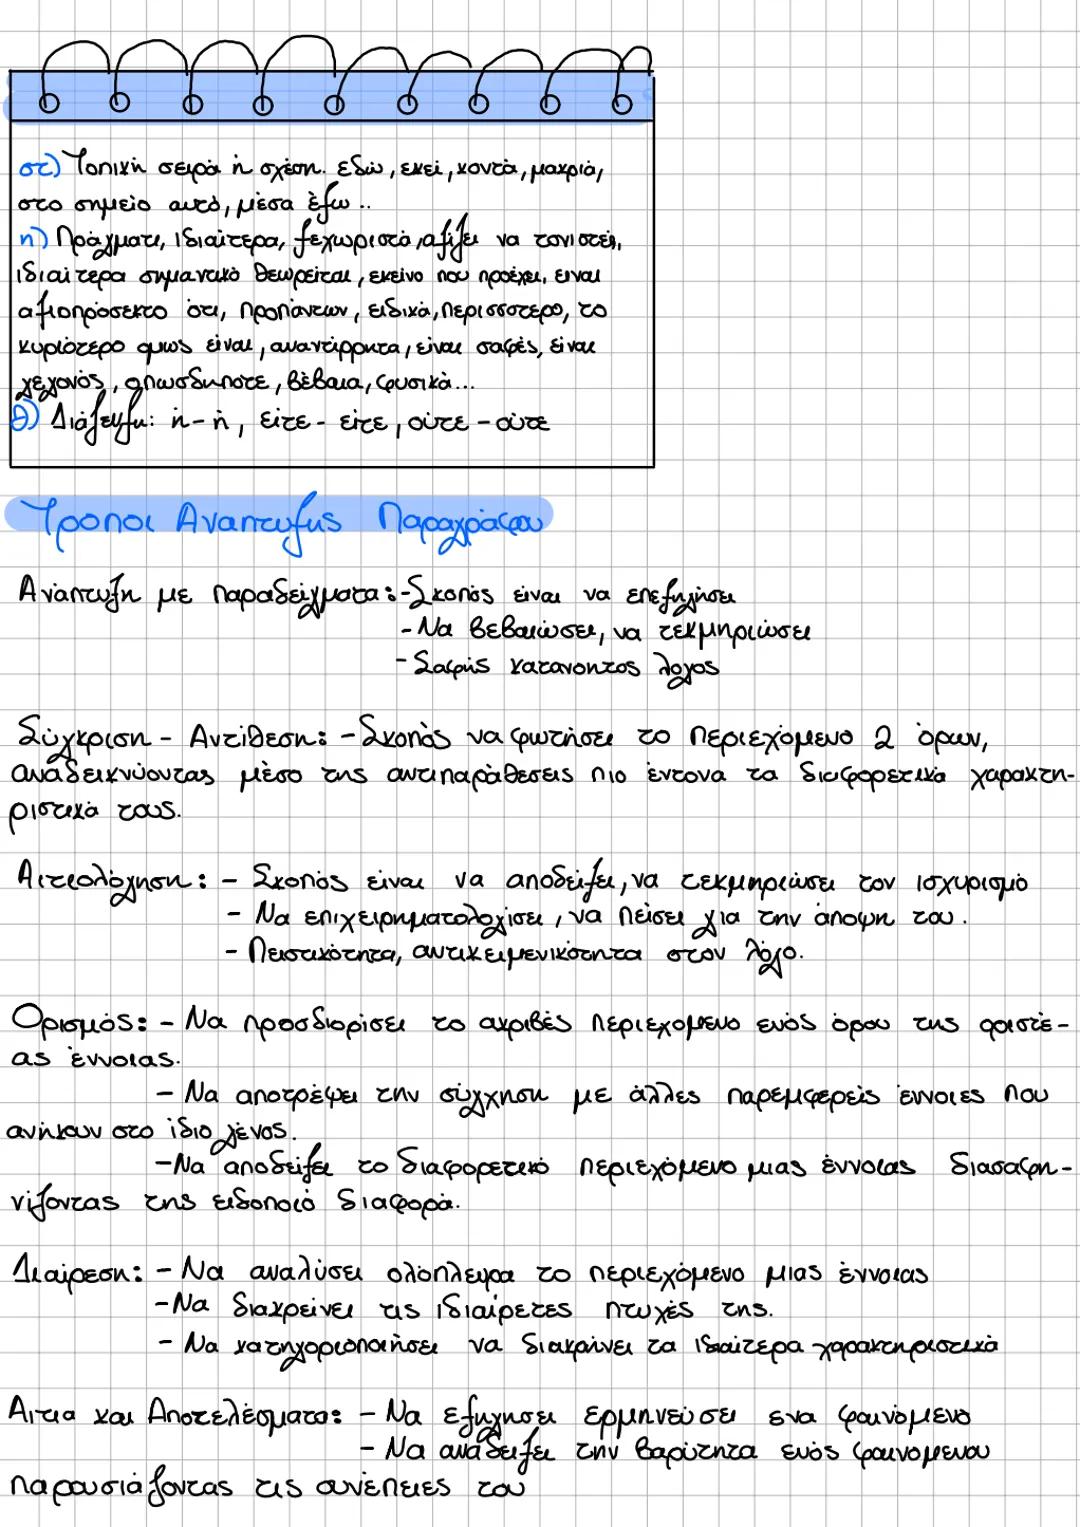 στ) Τοπική σειρά ή σχέση. εδώ, εκεί, κοντά, μακριά,
στο σημείο αυτό, μέσα έξω ..
η) Πράγματι, ιδιαίτερα, ξεχωριστά, αξίζει να τονιστεί,
ιδιαίτερα σημαντικό θεωρείται, εκείνο που προέχει, είναι
αξιοπρόσεκτο ότι, προπάντων, ειδικά, περισσότερο, το
κυριότερο όμως είναι, αναντίρρητα, είναι σαφές, είναι
γεγονός, οπωσδήποτε, βέβαια, φυσικά...
θ) Διάζευξη: ή - ή, είτε - είτε, ούτε - ούτε
Τροποι Αναπτυξης Παραγράφου
Ανάπτυξη με παραδείγματα: - Σκοπός είναι να επεξηγήσει
- Να βεβαιώσει, να τεκμηριώσει
- Σαφής κατανοητος λογος
Σύγκριση - Αντίθεση: - Σκοπός να φωτήσει το περιεχόμενο 2 όρων,
αναδεικνύοντας μέσο της αντιπαράθεσεις πιο έντονα τα διαφορετικά χαρακτη-
ριστικά τους.
Αιτιολόγηση: - Σκοπός είναι να αποδείξει, να τεκμηριώσει τον ισχυρισμό
- Να επιχειρηματολογίσει, να πείσει για την άποψη του.
- Πειστικότητα, αντικειμενικότητα στον λόγο.
Ορισμός: - Να προσδιορίσει το ακριβές περιεχομενο ενός όρου της οριστέ-
ας έννοιας.
- Να αποτρέψει την σύγχηση με άλλες παρεμφερείς έννοιες που
ανήκουν στο ίδιο γένος.
- Να αποδείξει το διαφορετικό περιεχόμενο μιας έννοιας διασαφη-
νίζοντας της ειδοποιό διαφορά.
Διαίρεση: - Να αναλύσει ολόπλευρα το περιεχόμενο μιας έννοιας
- Να διακρείνει τις ιδιαίρετες πτυχές της.
- Να κατηγοριοποιήσει να διακρίνει τα ιδιαίτερα χαρακτηριστικά
Αιτια και Αποτελέσματα: - Να εξηγησει ερμηνεύσει ενα φαινόμενο
- Να αναδείξει την βαρύτητα ενός φαινομενου
παρουσιάζοντας τις συνέπειες του